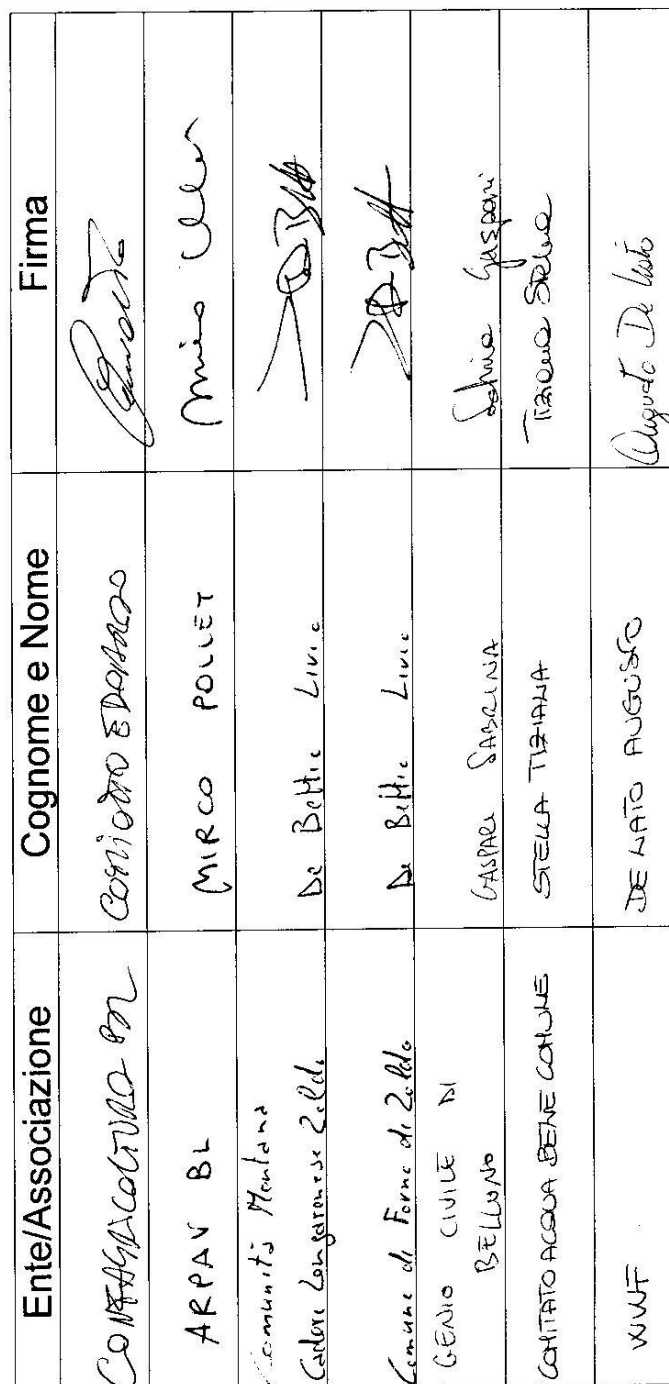 Ente/Associazione Cognome e Nome Firma
CONFAGRICOLTURA BL
ARPAV BL MIRCO POLLET Mirco
Comunità Montana
Cadore Longaronese Zoldo De Bettio Livio
Comune di Forno di Zoldo De Bettio Livio
GENIO CIVILE DI
BELLUNO GASPARI SABRINA Sabrina Gaspari
COMITATO ACQUA BENE COMUNE STELLA TIZIANA Tiziana Stella
WWF DE NATO AUGUSTO Augusto De Nato